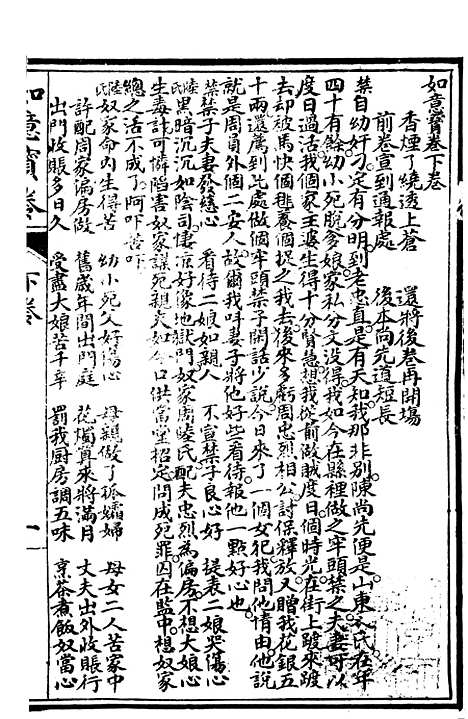 如意寶卷下卷
香煙了繞透上蒼　還將後卷再開場
前卷宣到通報處　後本尚先道短長
禁自幼奸刁定有分明到老忠直是有天知我那非別陳尚先便是山東人氏在年
四十有餘幼小死脫爹娘家私分文没得我如今在縣裡做之牢頭禁之夫妻可以
度日過活我個家主婆生得十分賢慧想我從前做賊度日個時光在街上踱來踱
去却被馬快個  養個捉之我去後來多虧周忠烈相公討保釋放又贈我花銀五
十兩還薦到此處做個牢頭禁子閑話少說今日來了一個女犯我問他情由他說
就是周員外個二安人故爾我呌妻子將他好些看待報他一點好心也
禁禁子夫妻發慈心　看待二娘如親人　不宣禁子良心好　提表二娘哭傷心
陸氏黑暗沉沉如陰司悽凉好像地獄門奴家周陸氏配夫忠烈為偏房不想大娘心
生毒計可憐陷害奴家謀死親夫如今口供當堂招定問成死罪囚在監中想奴家
總之活不成了阿吓苦吓
陸氏奴家命內生得苦　幼小死父好傷心　母親做了孤孀婦　母女二人苦家中
許配周家偏房做　舊歲年間出門庭　花燭算來將滿月　丈夫出外收賬行
出門收賬多日久　受盡大娘苦千辛　罰我厨房調五味　烹茶煮飯奴當心
如意寶卷　下卷　一